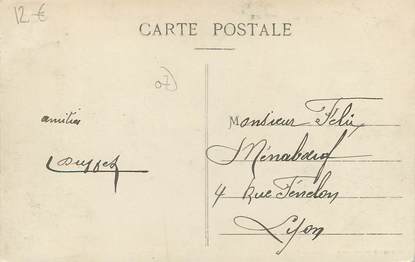 12 €
CARTE POSTALE
07
amitiés
Monsieur Félix
4 Rue Fénelon
Lyon